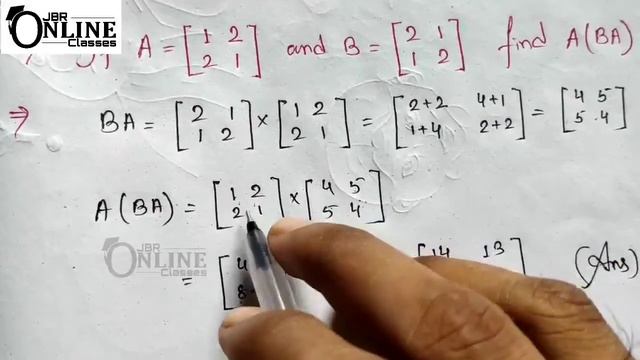 JBR
ONLINE
Classes
A = [1 2 2 1] and B = [2 1 1 2] find A(BA)
⇒ BA = [2 1 1 2] × [1 2 2 1] = [2+2 4+1 1+4 2+2] = [4 5 5 4]
A(BA) = [1 2 2 1] × [4 5 5 4]
JBR
ONLINE
Classes
= [4 8 [14 13 ] (Ans)